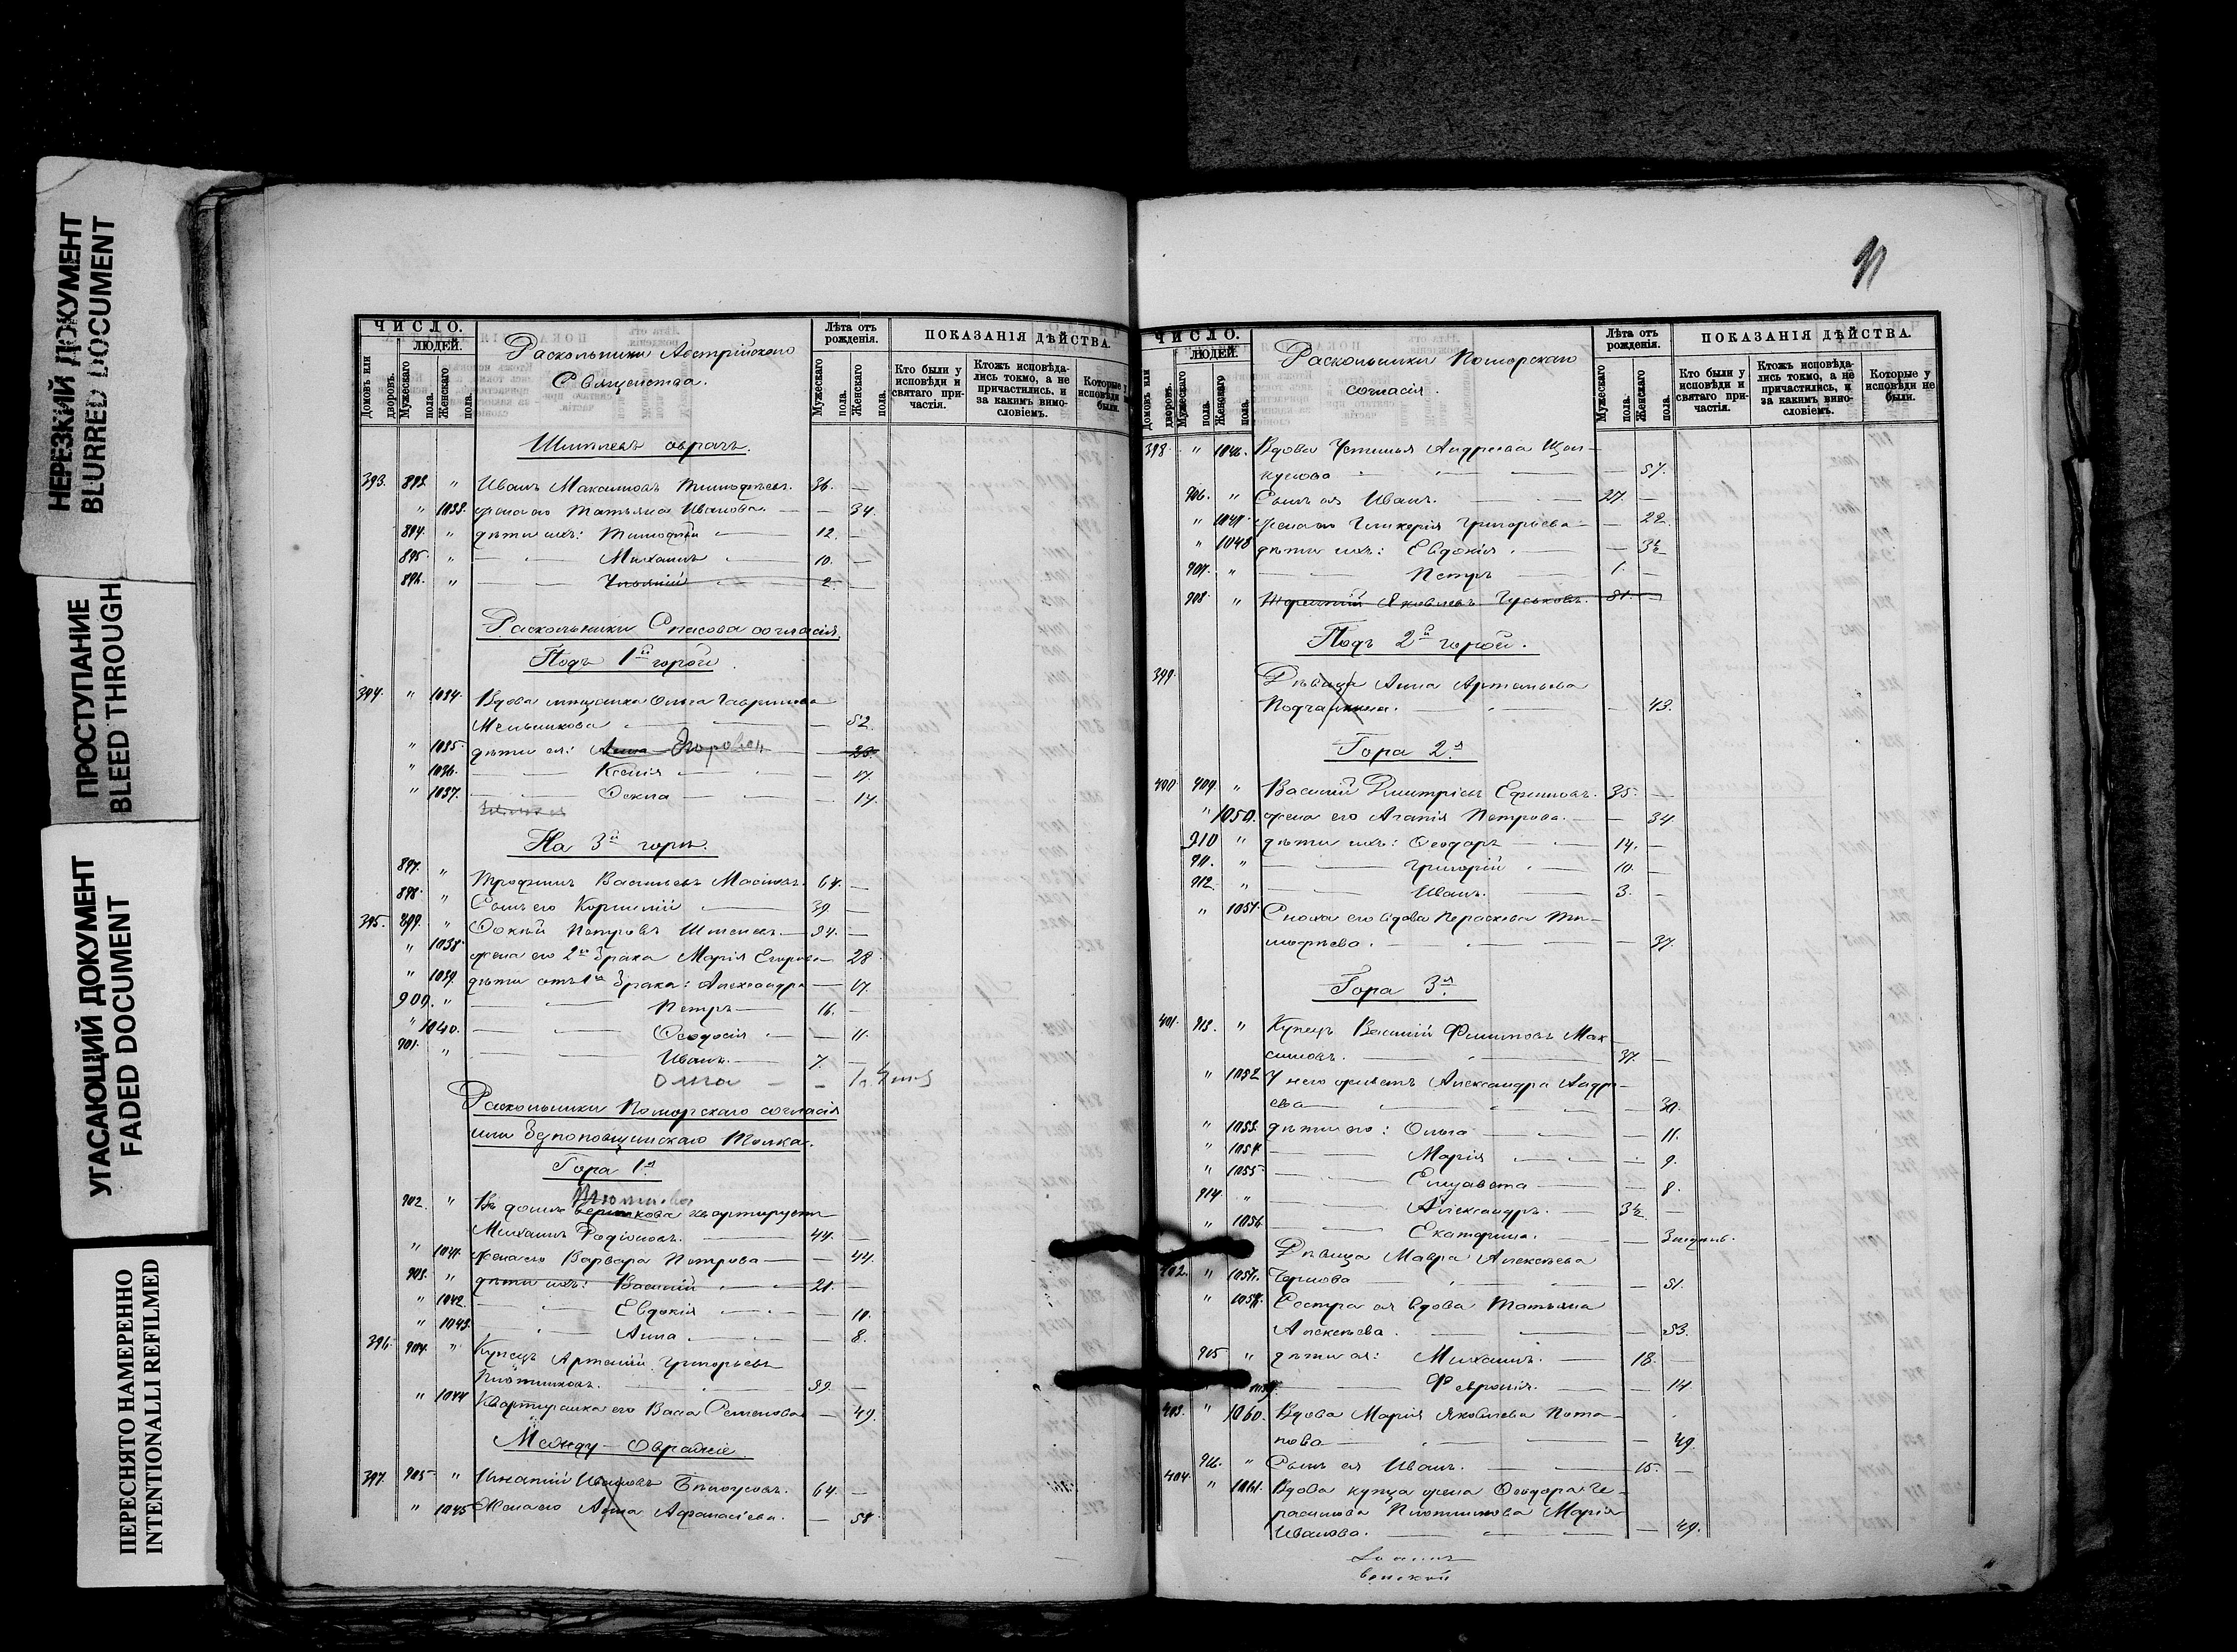 НЕРЕЗКИЙ ДОКУМЕНТ
BLURRED DOCUMENT
ПРОСТУПАНИЕ
BLEED THROUGH
УГАСАЮЩИЙ ДОКУМЕНТ
FADED DOCUMENT
ПЕРЕСНЯТО НАМЕРЕННО
INTENTIONALLI REFILMED
ЧИСЛО.
ЛЮДЕЙ.
Домовъ или дворовъ.
Мужескаго пола.
Женскаго пола.
Раскольники Австрійскаго
Священства.
Лѣта отъ рожденія.
Мужескаго пола.
Женскаго пола.
ПОКАЗАНІЯ ДѢЙСТВА.
Кто были у исповѣди и святаго причастія.
Ктожъ исповѣдались токмо, а не причастились, и за какимъ винословіемъ.
Которые у исповѣди не были.
оврагъ.
393. 893. " Иванъ Максимовъ Тимофѣевъ. 36. —
" 1033. жена его Татьяна Иванова. — 34.
894. " дѣти ихъ: Тимофѣй 12. —
895. " Михаилъ 10. —
896. " 2. —
Раскольники Спасова согласія.
Подъ 1й горой.
394. " 1034. Вдова мѣщанка Ольга Гаврилова
Мельникова — 52.
" 1035. дѣти ея: Анна
" 1036. Ксенія — 17.
" 1037. —
На 3й горѣ.
897. " Трофимъ Васильевъ 64. —
898. " Сынъ его Корнилій 39. —
395. 899. " Петровъ —
" 1038. жена его 2го брака Марія Егорова — 28.
" 1039. дѣти отъ 1го брака: Александра — 17.
900. " Петръ 16. —
" 1040. Ѳеодосія — 11.
901. " Иванъ. 7. —
Ольга —
Раскольники Поморскаго согласія
или безпоповщинскаго толка.
Гора 1я.
902. " Въ домѣ квартируетъ
Михаилъ Родіоновъ. 44. —
" 1041. жена его Варвара Петрова — 44.
903. " дѣти ихъ: Василій 21. —
" 1042. Евдокія — 10.
" 1043. Анна — 8.
396. 904. " Купецъ Артемій Григорьевъ
Плотниковъ. —
" 1044 Квартирантка его Васса Семенова — 49.
Между-овражье.
397. 905 " Игнатій Ивановъ Бѣлоусовъ. 64. —
" 1045 Жена его Анна Афанасіева. —
ЧИСЛО.
ЛЮДЕЙ.
Домовъ или дворовъ.
Мужескаго пола.
Женскаго пола.
Раскольники Поморскаго
согласія.
Лѣта отъ рожденія.
Мужескаго пола.
Женскаго пола.
ПОКАЗАНІЯ ДѢЙСТВА.
Кто были у исповѣди и святаго причастія.
Ктожъ исповѣдались токмо, а не причастились, и за какимъ винословіемъ.
Которые у исповѣди не были.
398 " 1046. Вдова Устинья Андреева
— 57.
906. " Сынъ ея Иванъ. 27. —
" 1047. жена его Гликерія Григорьева — 22.
" 1048 дѣти ихъ: Евдокія — 3½
907. " Петръ 1. —
908 " Яковлевъ Гуськовъ. 81. —
Подъ 2й горой.
399. Дѣвица Анна Артемьева
— 43.
Гора 2я.
400 909. " Василій Дмитріевъ Ефимовъ. 35. —
" 1050. жена его Агапія Петрова. — 34
910 " дѣти ихъ: Ѳеодоръ 14. —
911. " Григорій 10. —
912. " Иванъ. 3. —
" 1051. Сноха его вдова Параскева Ти-
мофѣева. — 37.
Гора 3я.
401. 913. " Купецъ Василій Филиповъ Мак-
симовъ. 37. —
" 1052 У него живетъ Александра Андре-
ева — 30.
" 1053. дѣти его: Ольга — 11.
" 1054. Марія — 9.
" 1055 Елизавета — 8.
914. " Александръ. 3½. —
" 1056 Екатерина. —
Дѣвица Мавра Алексѣева
402. " 1057. Чернова — 51.
" 1058. Сестра ея вдова Татьяна
Алексѣева. — 53.
915 " дѣти ея: Михаилъ. 18. —
1059. Февронія. — 14
403. " 1060. Вдова Марія Яковлева Пота-
пова — 49.
916. " Сынъ ея Иванъ. 15. —
404. " 1061. Вдова купца жена Ѳеодора Ге-
расимова Плотникова Марія
Иванова. — 49.